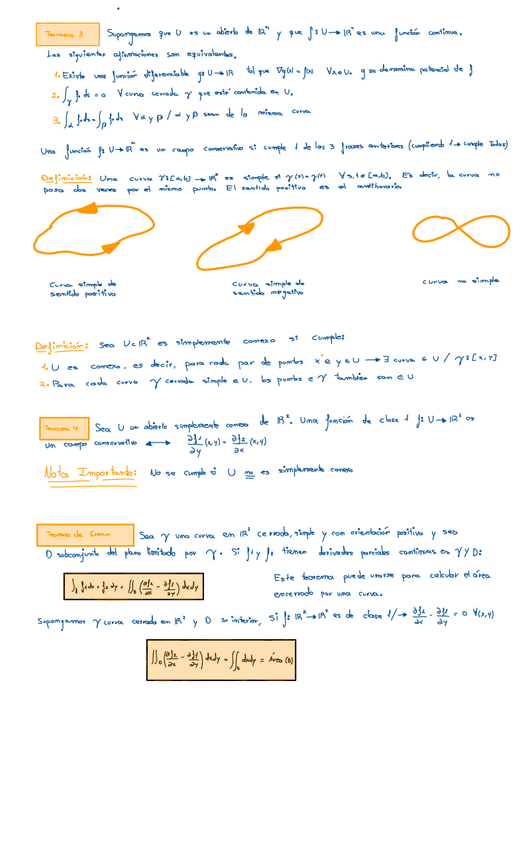 Teorema 3 Supongamos que U es un abierto de ℝⁿ y que f: U → ℝⁿ es una función continua.
Las siguientes afirmaciones son equivalentes.
1. Existe una función diferenciable g: U → ℝ tal que ∇g(x) = f(x) ∀x∈U. g se denomina potencial de f
2. ∫γ f·ds = 0 ∀ curva cerrada γ que esté contenida en U.
3. ∫α f·ds = ∫β f·ds ∀ α y β / α y β sean de la misma curva
Una función f: U → ℝⁿ es un campo conservativo si cumple 1 de las 3 frases anteriores (cumpliendo 1 → cumple todas)
Definición: Una curva γ: [a,b] → ℝⁿ es simple si γ(s) = γ(t) ∀s,t∈[a,b]. Es decir, la curva no
pasa dos veces por el mismo punto. El sentido positivo es el antihorario.
Curva simple de
sentido positivo
Curva simple de
sentido negativo
curva no simple
Definición: Sea U⊂ℝ² es simplemente conexo si cumple:
1. U es conexo, es decir, para cada par de puntos x e y ∈ U → ∃ curva ∈ U / γ: [x,y]
2. Para cada curva γ cerrada simple ∈ U, los puntos ∈ γ también son ∈ U
Teorema 4 Sea U un abierto simplemente conexo de ℝ². Una función de clase 1 f: U → ℝ² es
un campo conservativo ↔ ∂f1/∂y (x,y) = ∂f2/∂x (x,y)
Nota Importante: No se cumple si U no es simplemente conexo
Teorema de Green Sea γ una curva en ℝ² cerrada, simple y con orientación positiva y sea
D subconjunto del plano limitado por γ. Si f1 y f2 tienen derivadas parciales continuas en γ y D:
∫γ f1 dx + f2 dy = ∬D (∂f2/∂x - ∂f1/∂y) dxdy
Este teorema puede usarse para calcular el área
encerrada por una curva.
Supongamos γ curva cerrada en ℝ² y D su interior, Si f: ℝ² → ℝ² es de clase 1 / → ∂f2/∂x - ∂f1/∂y = 0 ∀(x,y)
∬D (∂f2/∂x - ∂f1/∂y) dxdy = ∬D dxdy = Área (D)